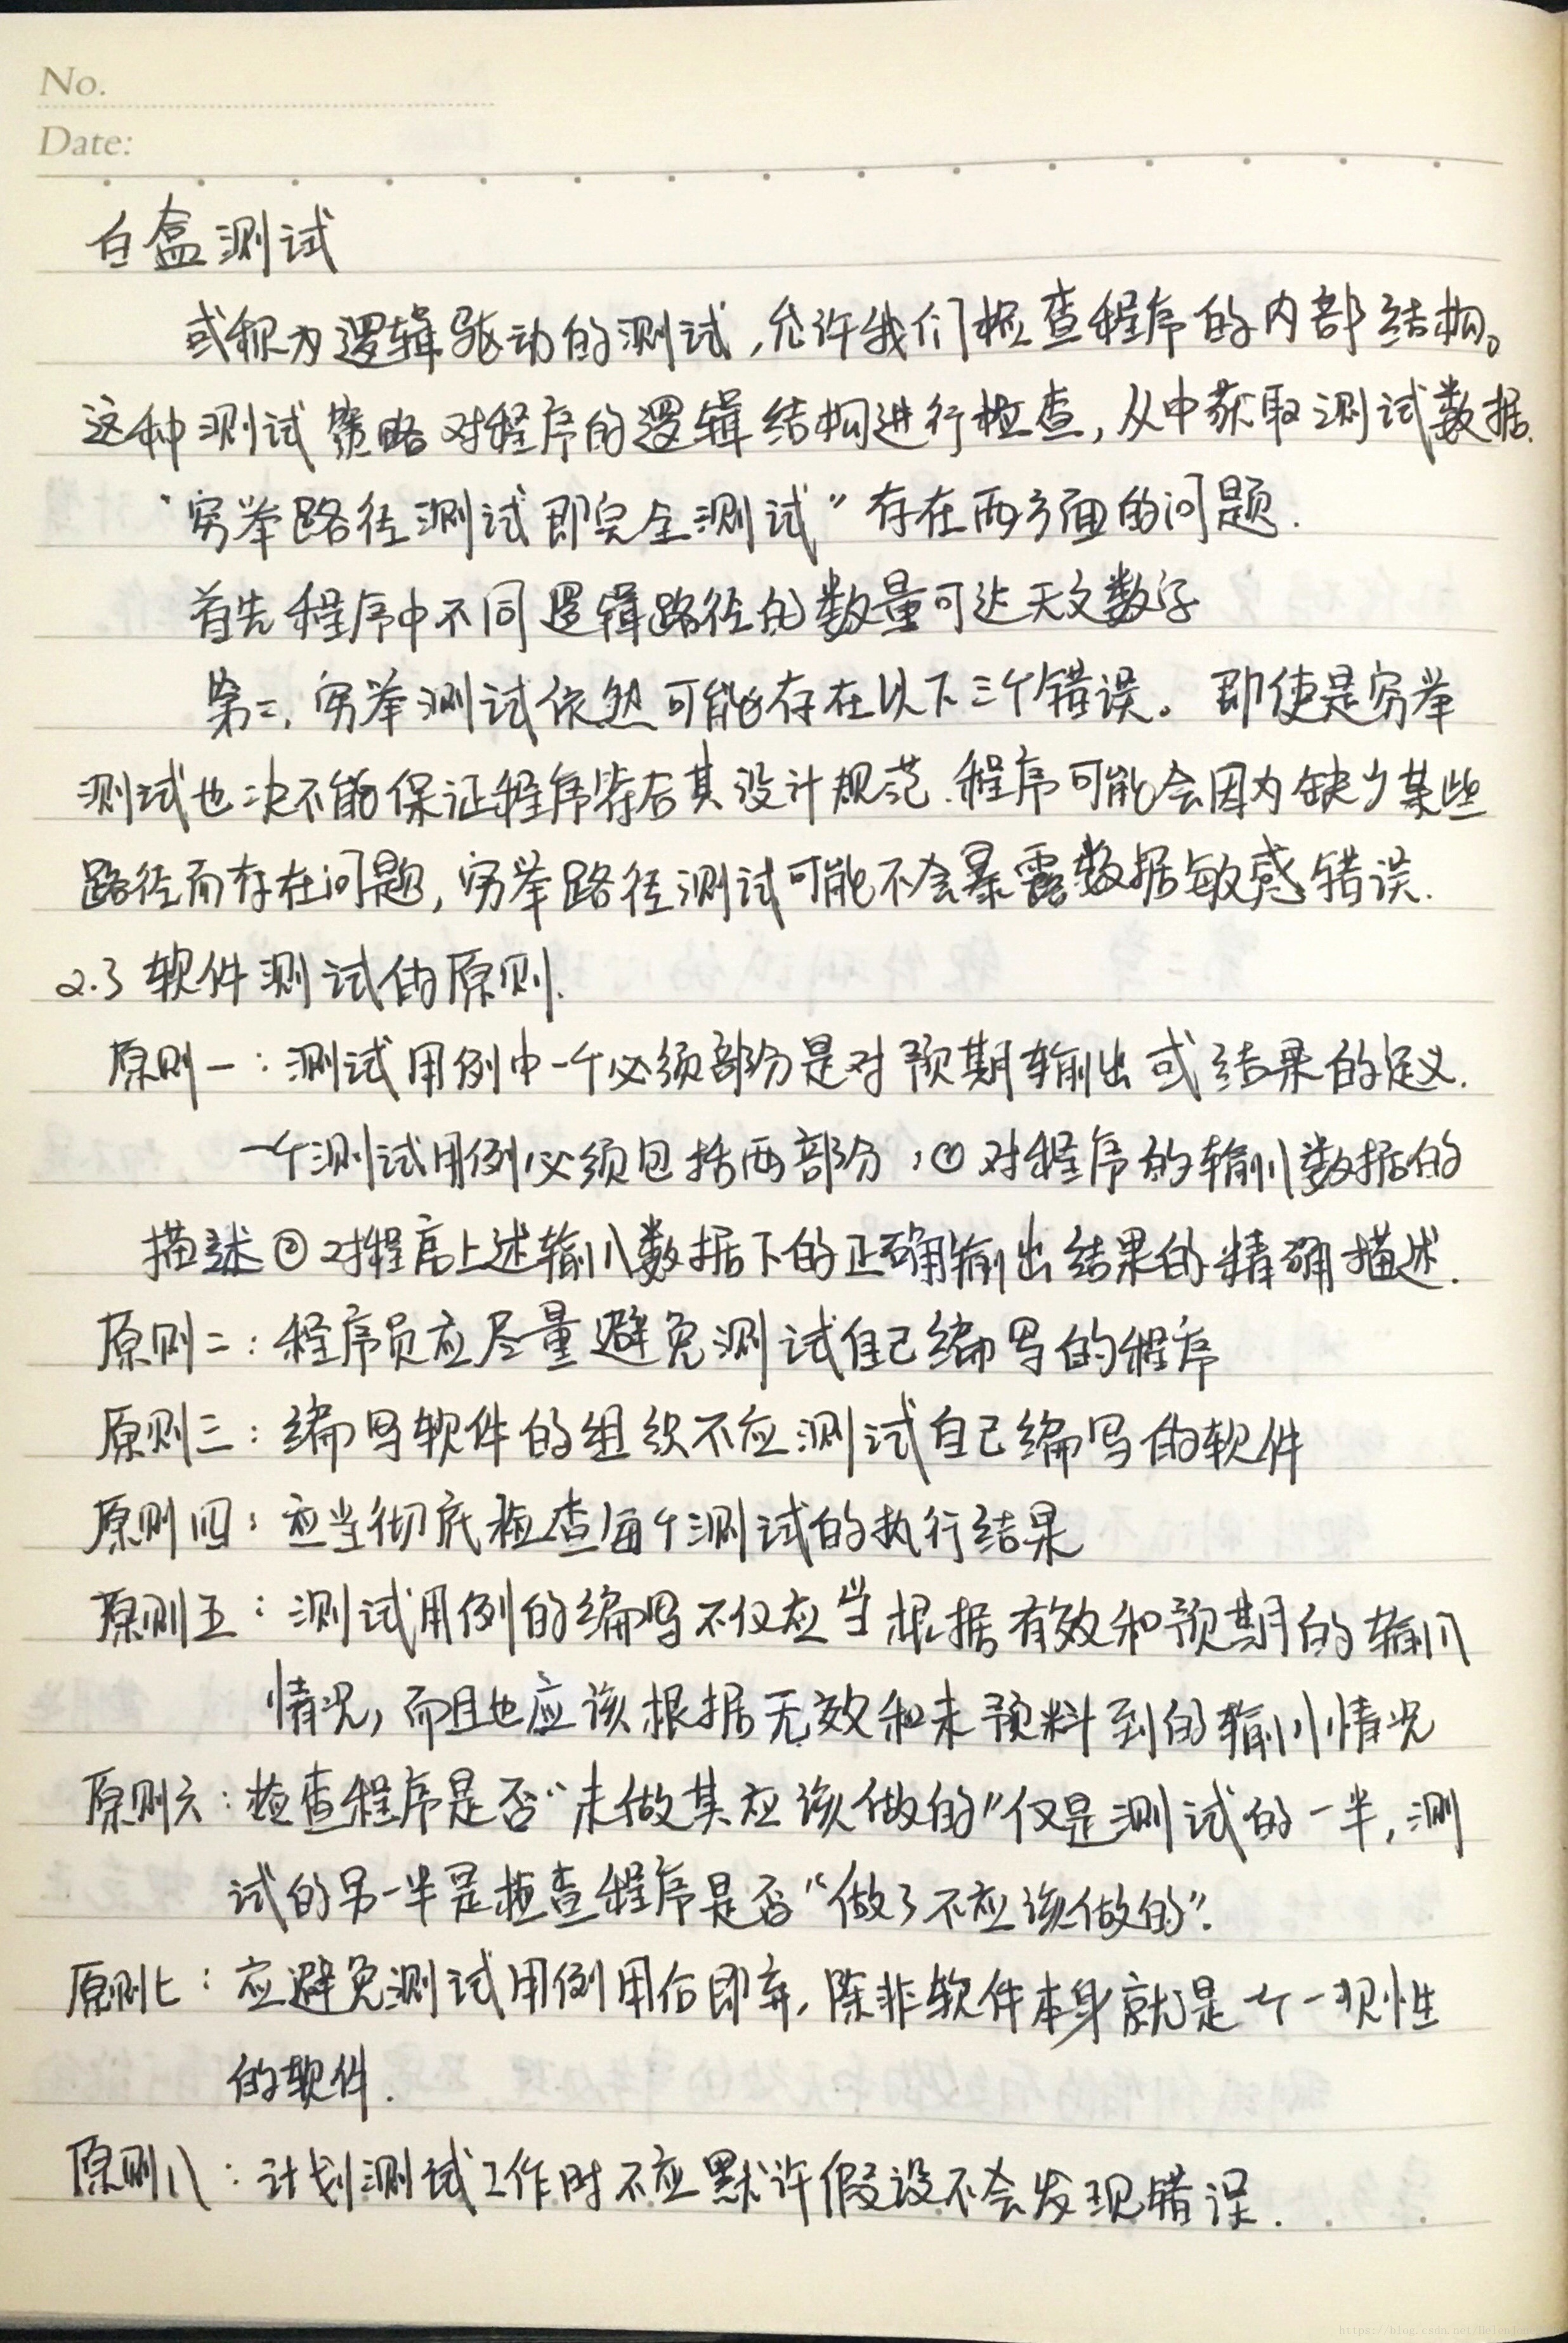 No.
Date:
白盒测试
或称为逻辑驱动的测试,允许我们检查程序的内部结构。
这种测试策略对程序的逻辑结构进行检查,从中获取测试数据.
“穷举路径测试即完全测试”存在两方面的问题.
首先程序中不同逻辑路径的数量可达天文数字
第二,穷举测试依然可能存在以下三个错误。即使是穷举
测试也决不能保证程序符合其设计规范.程序可能会因为缺少某些
路径而存在问题,穷举路径测试可能不会暴露数据敏感错误.
2.3 软件测试的原则.
原则一:测试用例中一个必须部分是对预期输出或结果的定义.
一个测试用例必须包括两部分,①对程序的输入数据的
描述②对程序上述输入数据下的正确输出结果的精确描述.
原则二:程序员应尽量避免测试自己编写的程序
原则三:编写软件的组织不应测试自己编写的软件
原则四:应当彻底检查每个测试的执行结果
原则五:测试用例的编写不仅应当根据有效和预期的输入
情况,而且也应该根据无效和未预料到的输入情况
原则六:检查程序是否“未做其应该做的”仅是测试的一半,测
试的另一半是检查程序是否“做了不应该做的”.
原则七:应避免测试用例用后即弃,除非软件本身就是个一次性
的软件.
原则八:计划测试工作时不应默许假设不会发现错误.